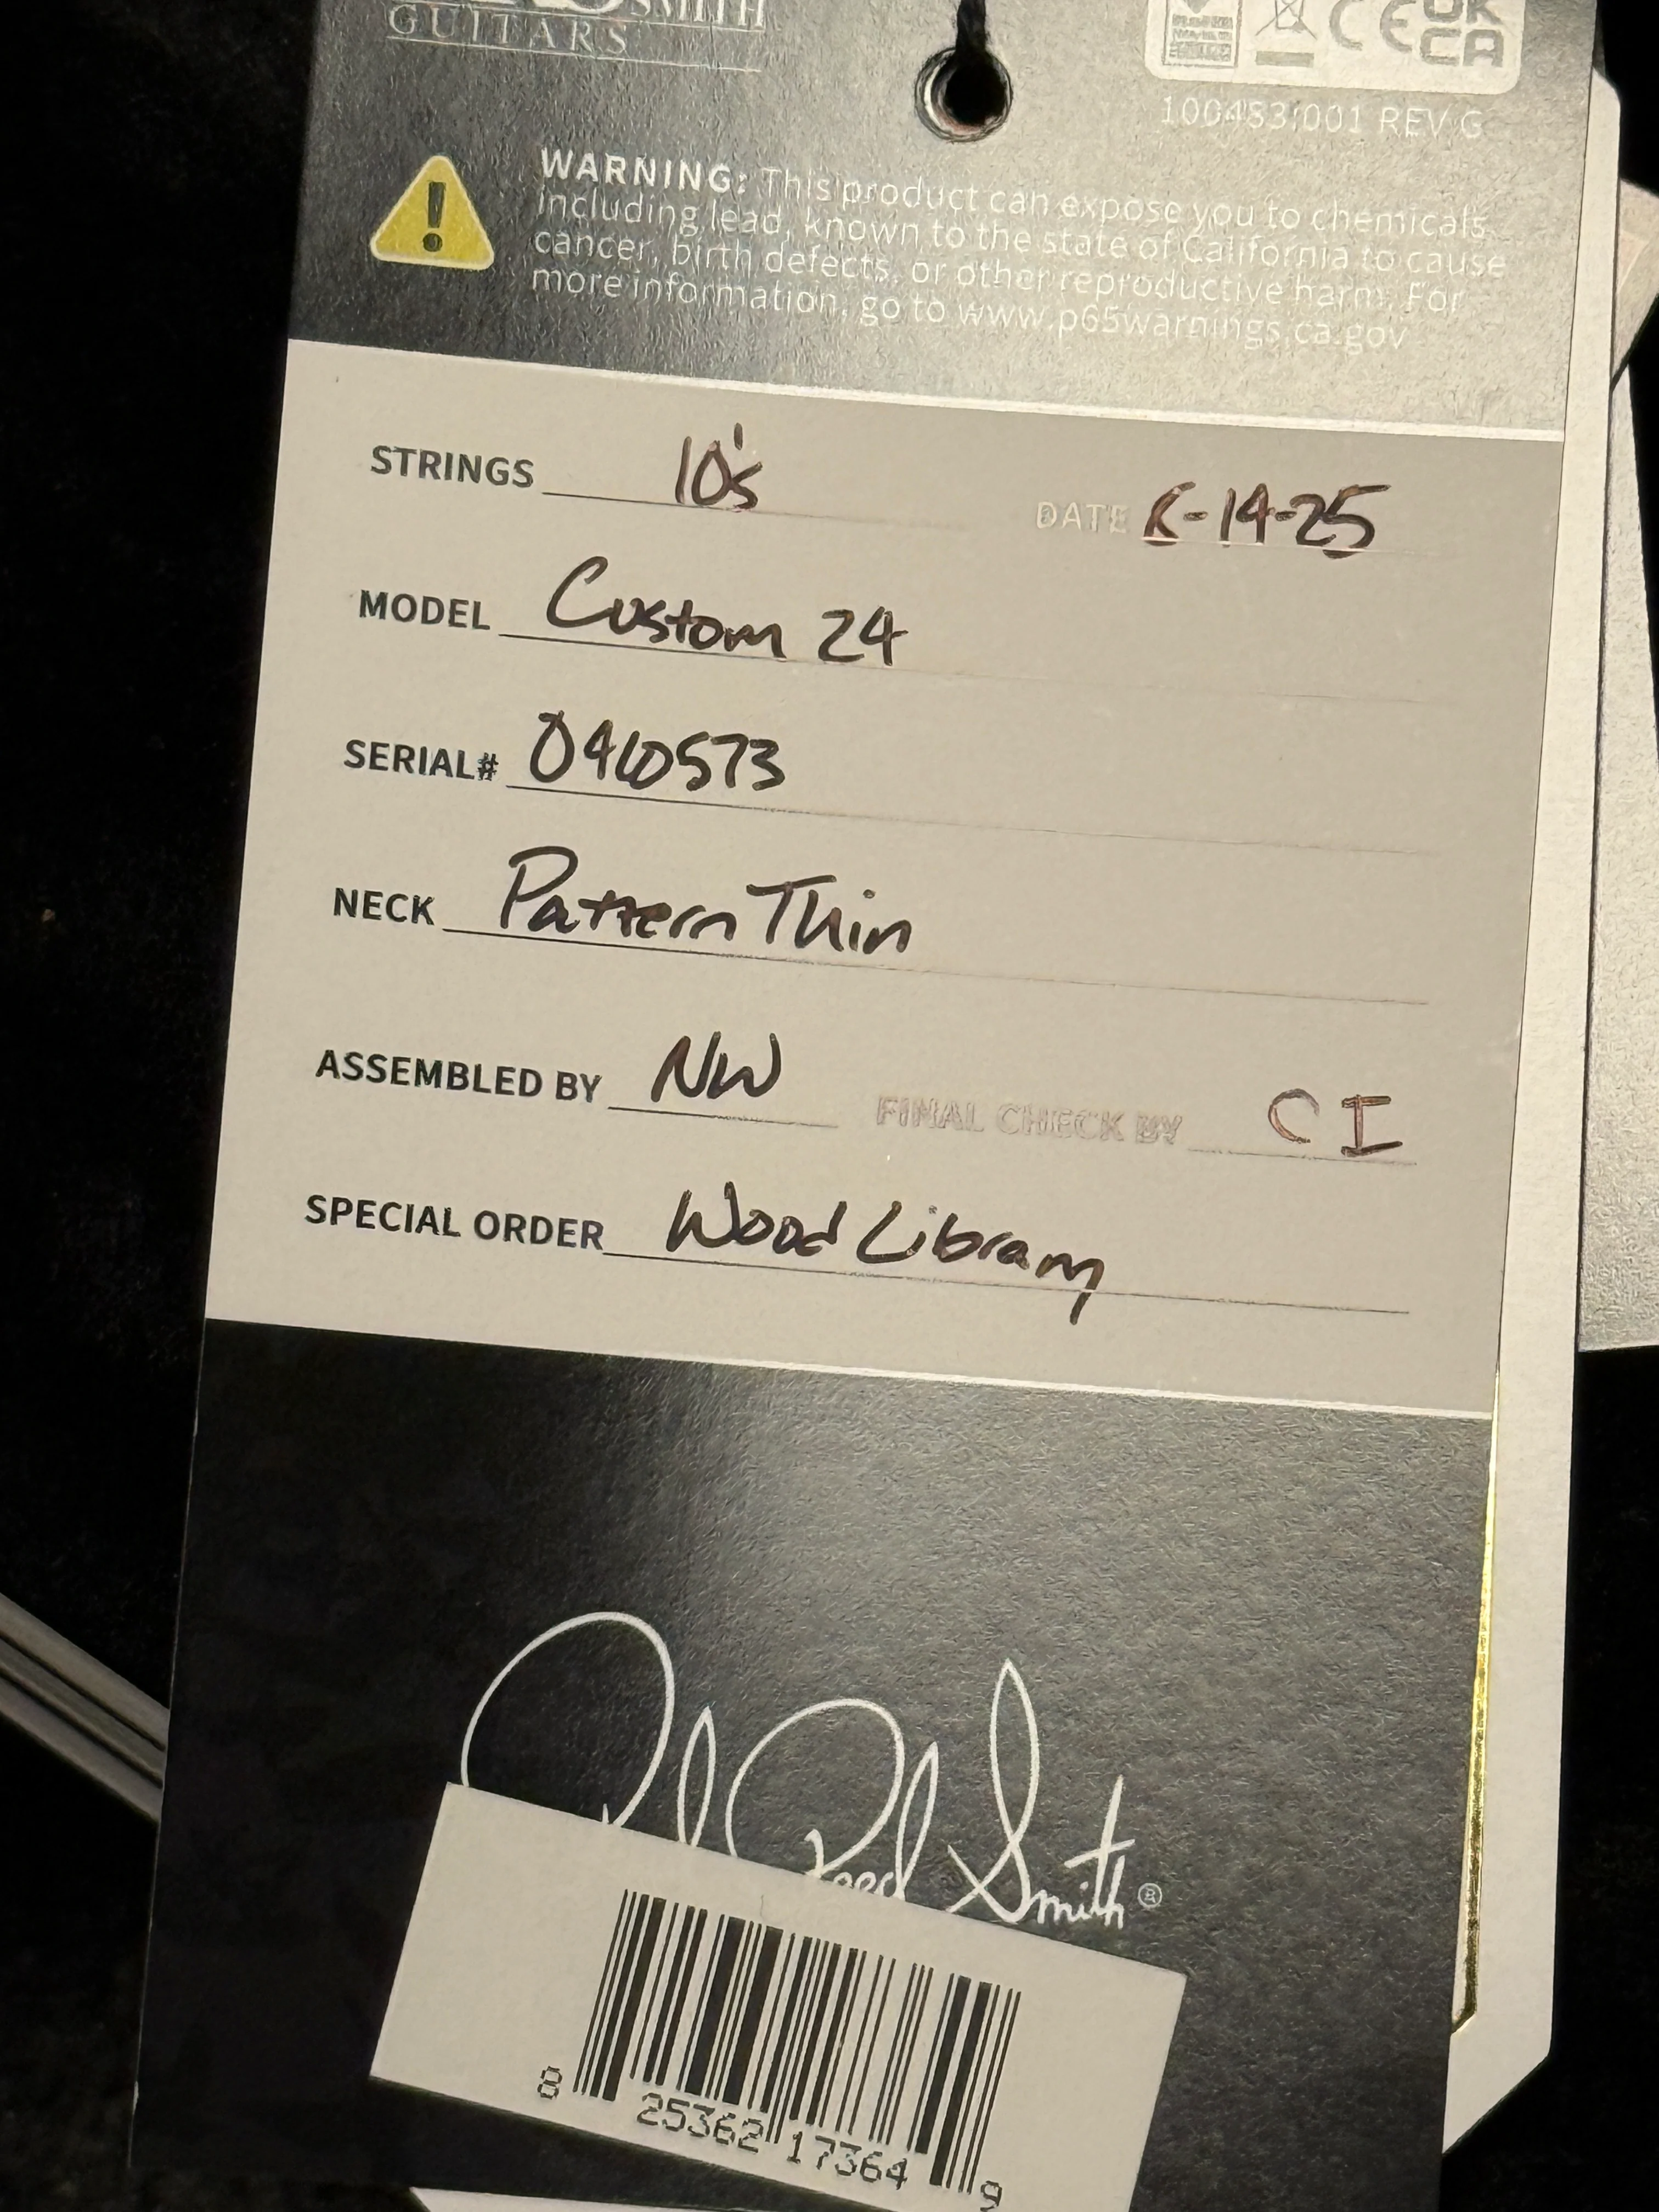 SMITH
GUITARS
UK
CE CA
100483:001 REV G
WARNING: This product can expose you to chemicals
including lead, known to the state of California to cause
cancer, birth defects, or other reproductive harm. For
more information, go to www.p65warnings.ca.gov
STRINGS 10's DATE 8-14-25
MODEL Custom 24
SERIAL# 0410573
NECK Pattern Thin
ASSEMBLED BY NW FINAL CHECK BY CI
SPECIAL ORDER Wood Library
Paul Reed Smith®
8 25362 17364 9